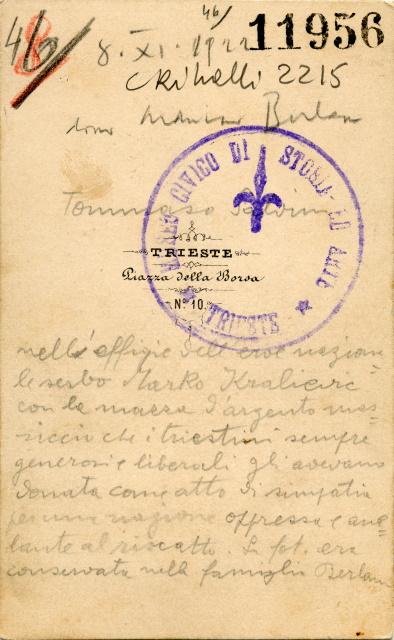 46/
46
8
8. XI. 1922
11956
Crihelli 2215
dono Berlam
Tommaso Salvini
CIVICO DI STORIA ED ARTE
TRIESTE
TRIESTE
Piazza della Borsa
N.º 10.
nell'effigie dell'eroe naziona
le serbo Marko Kralievic
con la mazza d'argento mas=
siccio che i triestini sempre
generosi e liberali gli avevano
donata come atto di simpatia
per una nazione oppressa e ane=
lante al riscatto. La fot. era
conservata nella famiglia Berlam